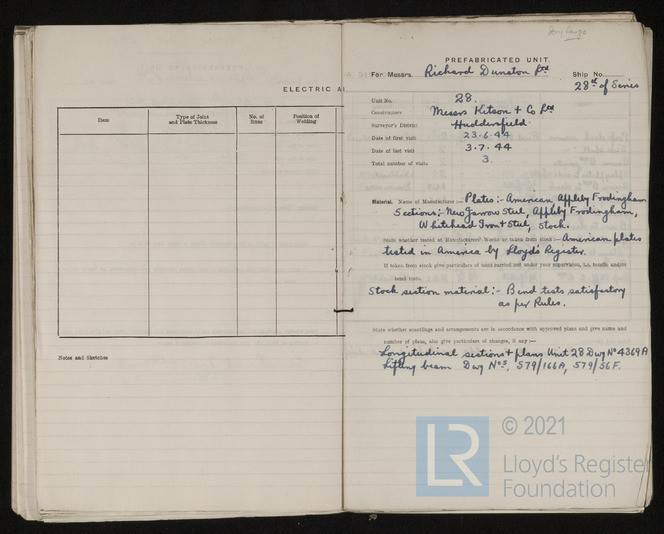 ELECTRIC A
Item
Type of Joint
and Plate Thickness
No. of
Runs
Position of
Welding
Notes and Sketches
Dry Cargo
PREFABRICATED UNIT.
For Messrs. Richard Dunston Ltd Ship No.
28th of Series
Unit No. 28.
Constructors Messrs Kitson & Co Ltd
Surveyor's District Huddersfield
Date of first visit 23.6.44
Date of last visit 3.7.44
Total number of visits 3.
Material. Name of Manufacturer :— Plates :- American, Appleby Frodingham
Sections :- New Jarrow Steel, Appleby Frodingham,
Whitehead Iron & Steel, Stock.
State whether tested at Manufacturers' Works or taken from stock :— American plates
tested in America by Lloyd's Register.
If taken from stock give particulars of tests carried out under your supervision, i.e. tensile and/or
bend tests.
Stock section material :- Bend tests satisfactory
as per Rules.
State whether scantlings and arrangements are in accordance with approved plans and give name and
number of plans, also give particulars of changes, if any :—
Longitudinal sections & plans Unit 28 Dwg No 4369A
Lifting beam Dwg Nos. 579/166A, 579/56F.
LR
© 2021
Lloyd's Register
Foundation